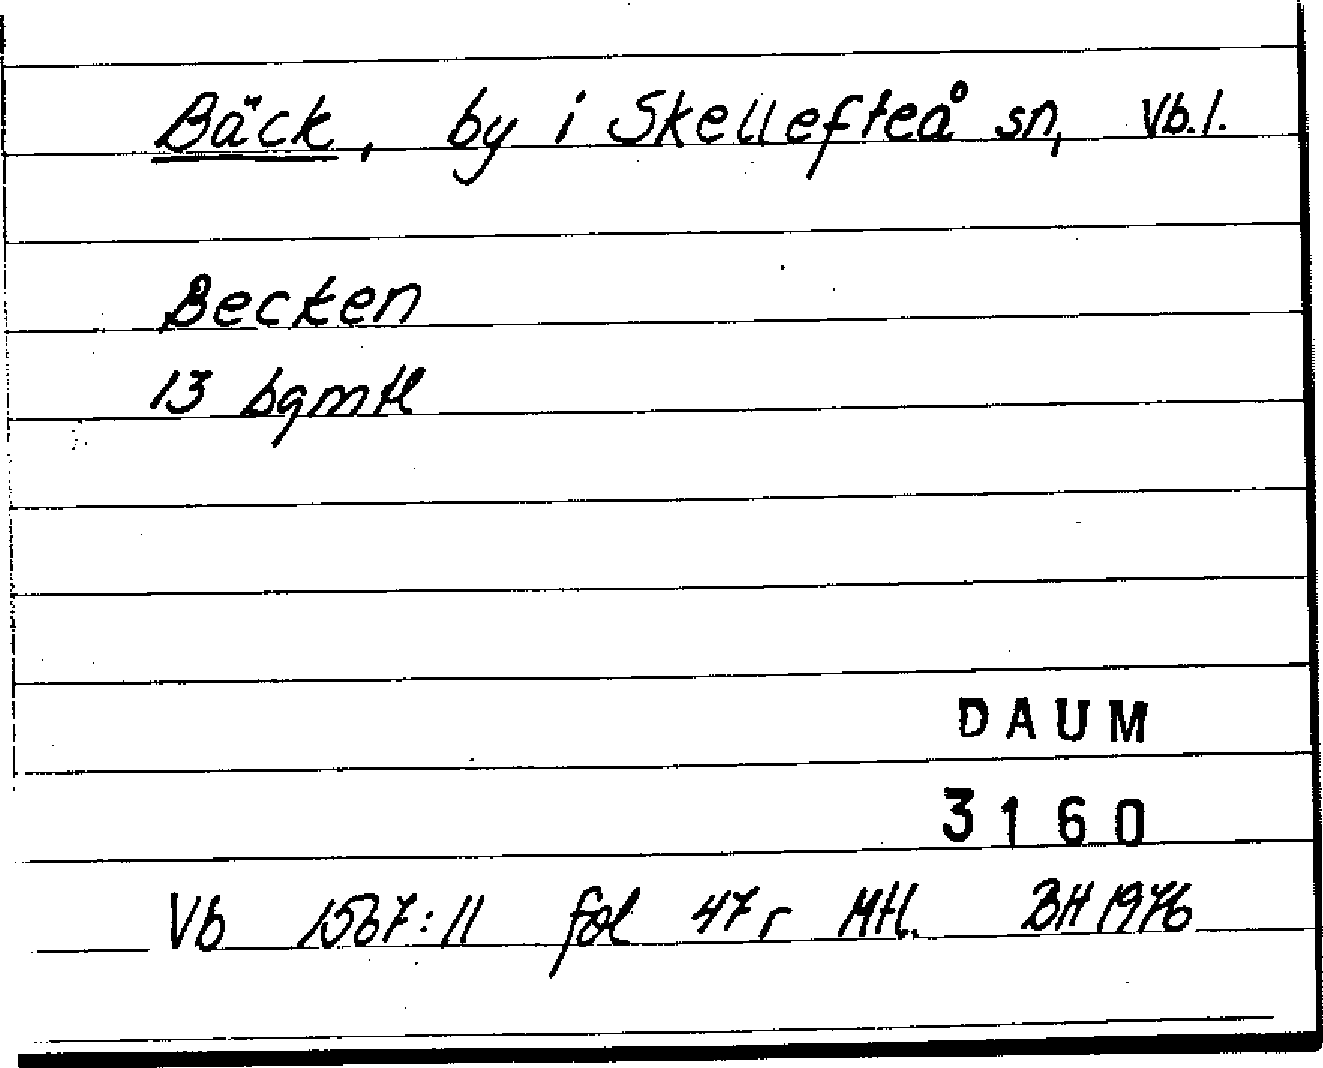 Bäck, by i Skellefteå sn, Vb.l.
Becken
13 bgmtl
DAUM
3160
Vb 1567:11 fol 47r Mtl. BH 1976